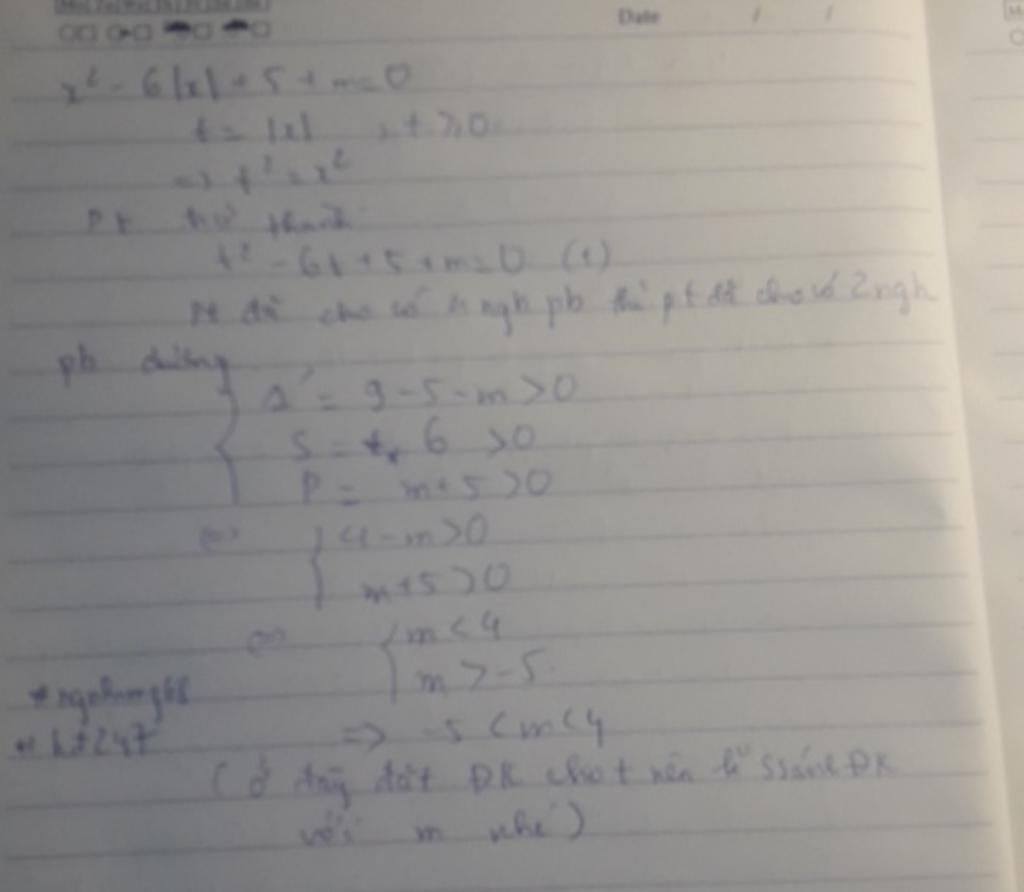 Date / /
x² - 6|x| + 5 + m = 0
t = |x| , t ≥ 0
=> t² = x²
Pt trở thành
t² - 6t + 5 + m = 0 (1)
Pt đã cho có 4 ngh pb thì pt đã cho có 2 ngh
pb dương
Δ' = 9 - 5 - m > 0
S = 6 > 0
P = m + 5 > 0
<=> 4 - m > 0
m + 5 > 0
<=> m < 4
m > -5
=> -5 < m < 4
(Ở đây đặt ĐK cho t nên ĐK
với m nhé)